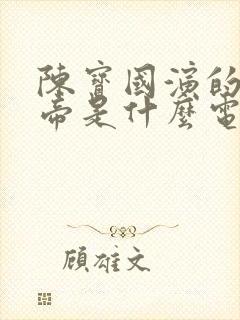 陳寶國演的
帝是什麼電
顧雄文